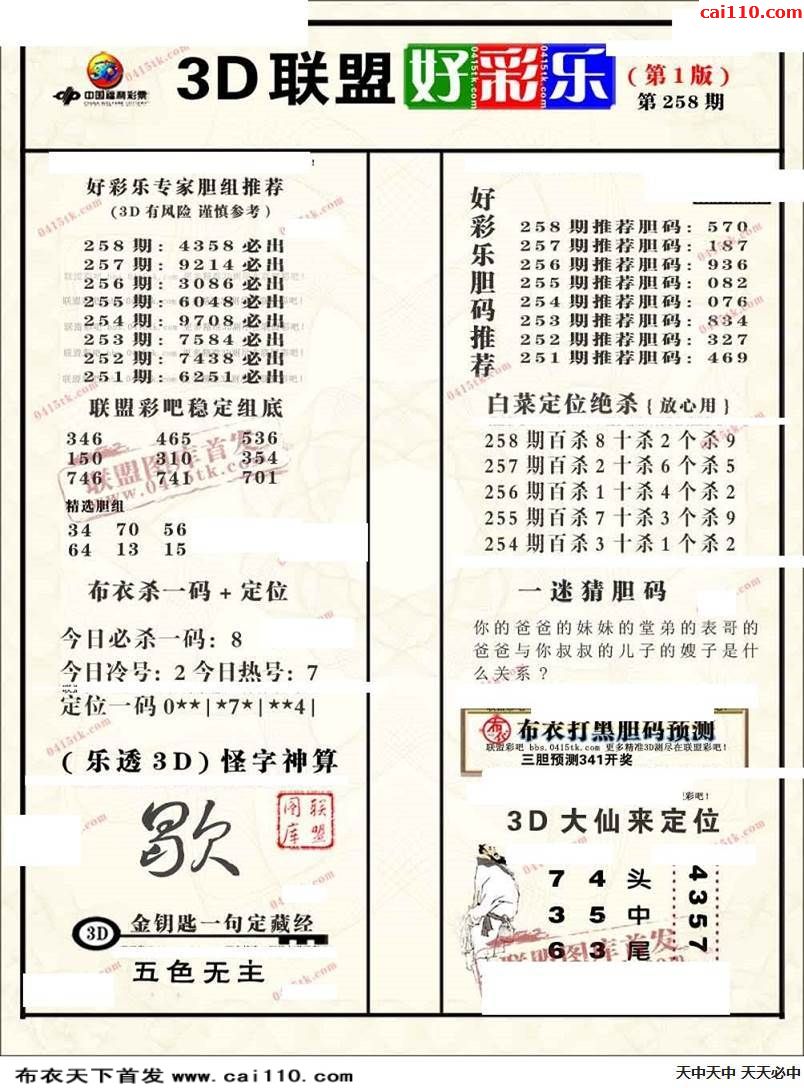 cai110.com
中国福利彩票
CHINA WELFARE LOTTERY
3D联盟好彩乐
(第1版)
第258期
好彩乐专家胆组推荐
(3D有风险 谨慎参考)
258期: 4358必出
257期: 9214必出
256期: 3086必出
255期: 6048必出
254期: 9708必出
253期: 7584必出
252期: 7438必出
251期: 6251必出
联盟彩吧稳定组底
346 465 536
150 310 354
746 741 701
联盟图库首发
www.0415tk.com
精选胆组
34 70 56
64 13 15
布衣杀一码+定位
今日必杀一码: 8
今日冷号: 2 今日热号: 7
定位一码 0**|*7*|**4|
(乐透3D)怪字神算
歇
联盟图库
3D 金钥匙一句定藏经
五色无主
好彩乐胆码推荐
258期推荐胆码: 570
257期推荐胆码: 187
256期推荐胆码: 936
255期推荐胆码: 082
254期推荐胆码: 076
253期推荐胆码: 834
252期推荐胆码: 327
251期推荐胆码: 469
白菜定位绝杀{放心用}
258期百杀8十杀2个杀9
257期百杀2十杀6个杀5
256期百杀1十杀4个杀2
255期百杀7十杀3个杀9
254期百杀3十杀1个杀2
一迷猜胆码
你的爸爸的妹妹的堂弟的表哥的
爸爸与你叔叔的儿子的嫂子是什
么关系?
布衣打黑胆码预测
联盟彩吧 bbs.0415tk.com 更多精准3D测尽在联盟彩吧!
三胆预测341开奖
彩吧!
3D大仙来定位
7 4 头
3 5 中
6 3 尾
4357
联盟图库首发
0415tk.com
布衣天下首发 www.cai110.com
天中天中 天天必中